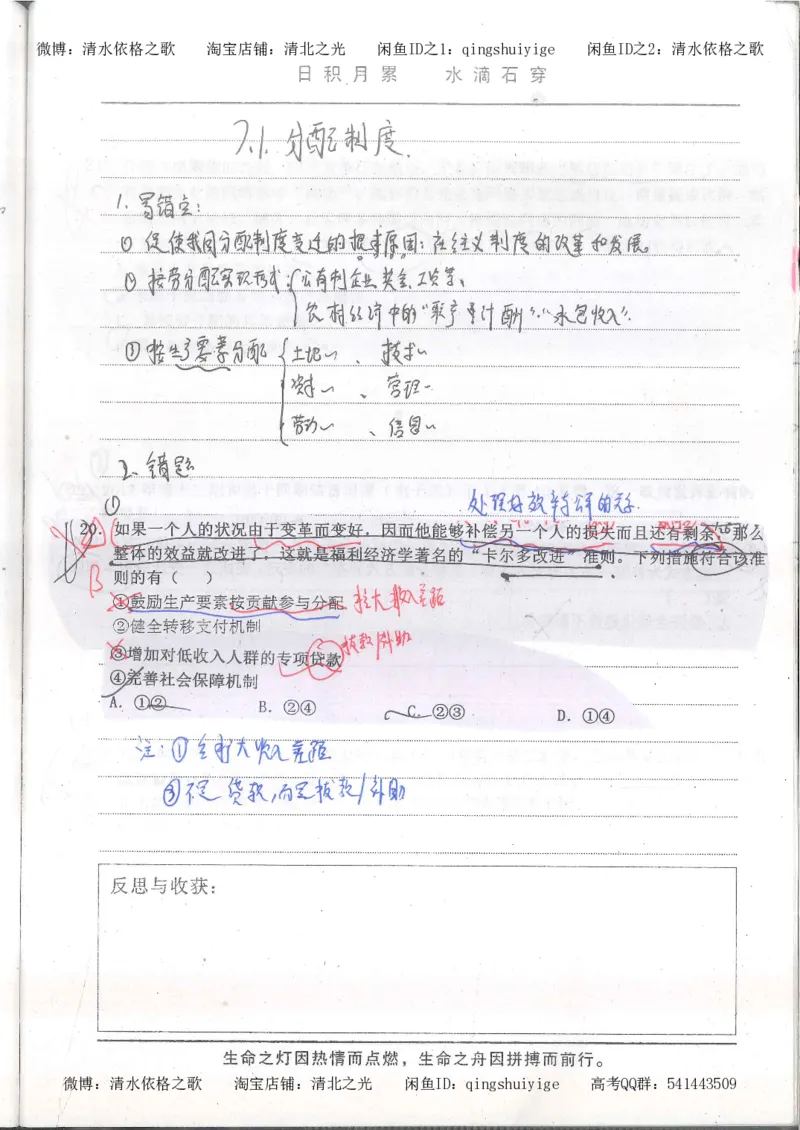 微博：清水依格之歌 淘宝店铺：清北之光 闲鱼ID之1：qingshuiyige 闲鱼ID之2：清水依格之歌
日积月累 水滴石穿
7.1.分配制度.
1.易错点：
① 促使我国分配制度变迁的根本原因：社会主义制度的改革和发展。
② 按劳分配实现形式：公有制企业奖金、工资等、
农村经济中的"联产计酬"、"承包收入".
③ 按生产要素分配 土地〃、技术〃
资本〃、管理〃
劳动〃、信息〃
2、错题
①
处理好效率与公平的关系.
20. 如果一个人的状况由于变革而变好，因而他能够补偿另一个人的损失而且还有剩余，那么
整体的效益就改进了，这就是福利经济学著名的“卡尔多改进”准则。下列措施符合该准
则的有（ ）
B
①鼓励生产要素按贡献参与分配 拉大收入差距
②健全转移支付机制
拨款/补助
③增加对低收入人群的专项贷款
④完善社会保障机制
A．①② B．②④ C．②③ D．①④
注：①会扩大收入差距
③不是贷款，而是拨款/补助
反思与收获：
生命之灯因热情而点燃，生命之舟因拼搏而前行。
微博：清水依格之歌 淘宝店铺：清北之光 闲鱼ID：qingshuiyige 高考QQ群：541443509